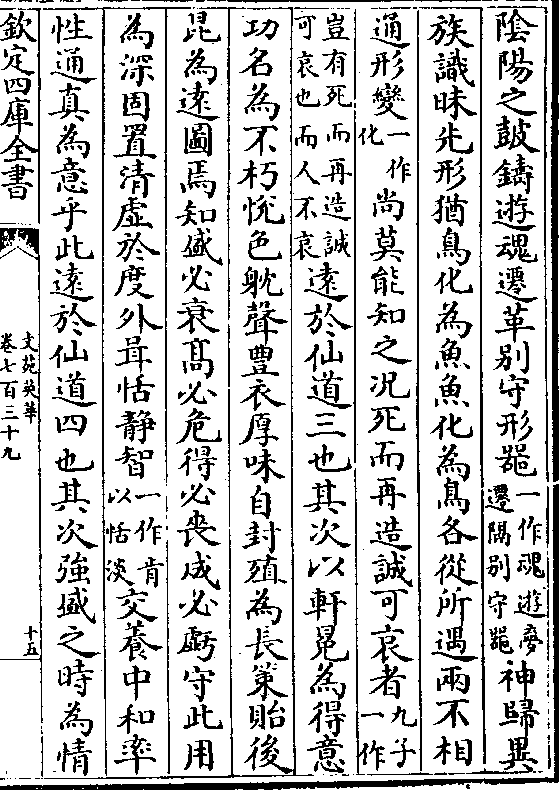 陰陽之鼓鑄遊魂遷革别守形噐一作魂遊夢遷隅别守噐神歸異
族識昧先形猶鳥化為魚魚化為鳥各從所遇兩不相
通形變一作化尚莫能知之况死而再造誠可哀者九子一作
豈有死而再造誠可哀也而人不哀遠於仙道三也其次以軒冕為得意
功名為不朽恱色躭聲豊衣厚味自封殖為長策貽後
昆為遠圖焉知盛必衰髙必危得必喪成必虧守此用
為深固置清虚於度外肎恬静智一作肯以恬淡交養中和率
性通真為意乎此遠於仙道四也其次強盛之時為情
欽定四庫全書
文苑英華
卷七百三十九
十五